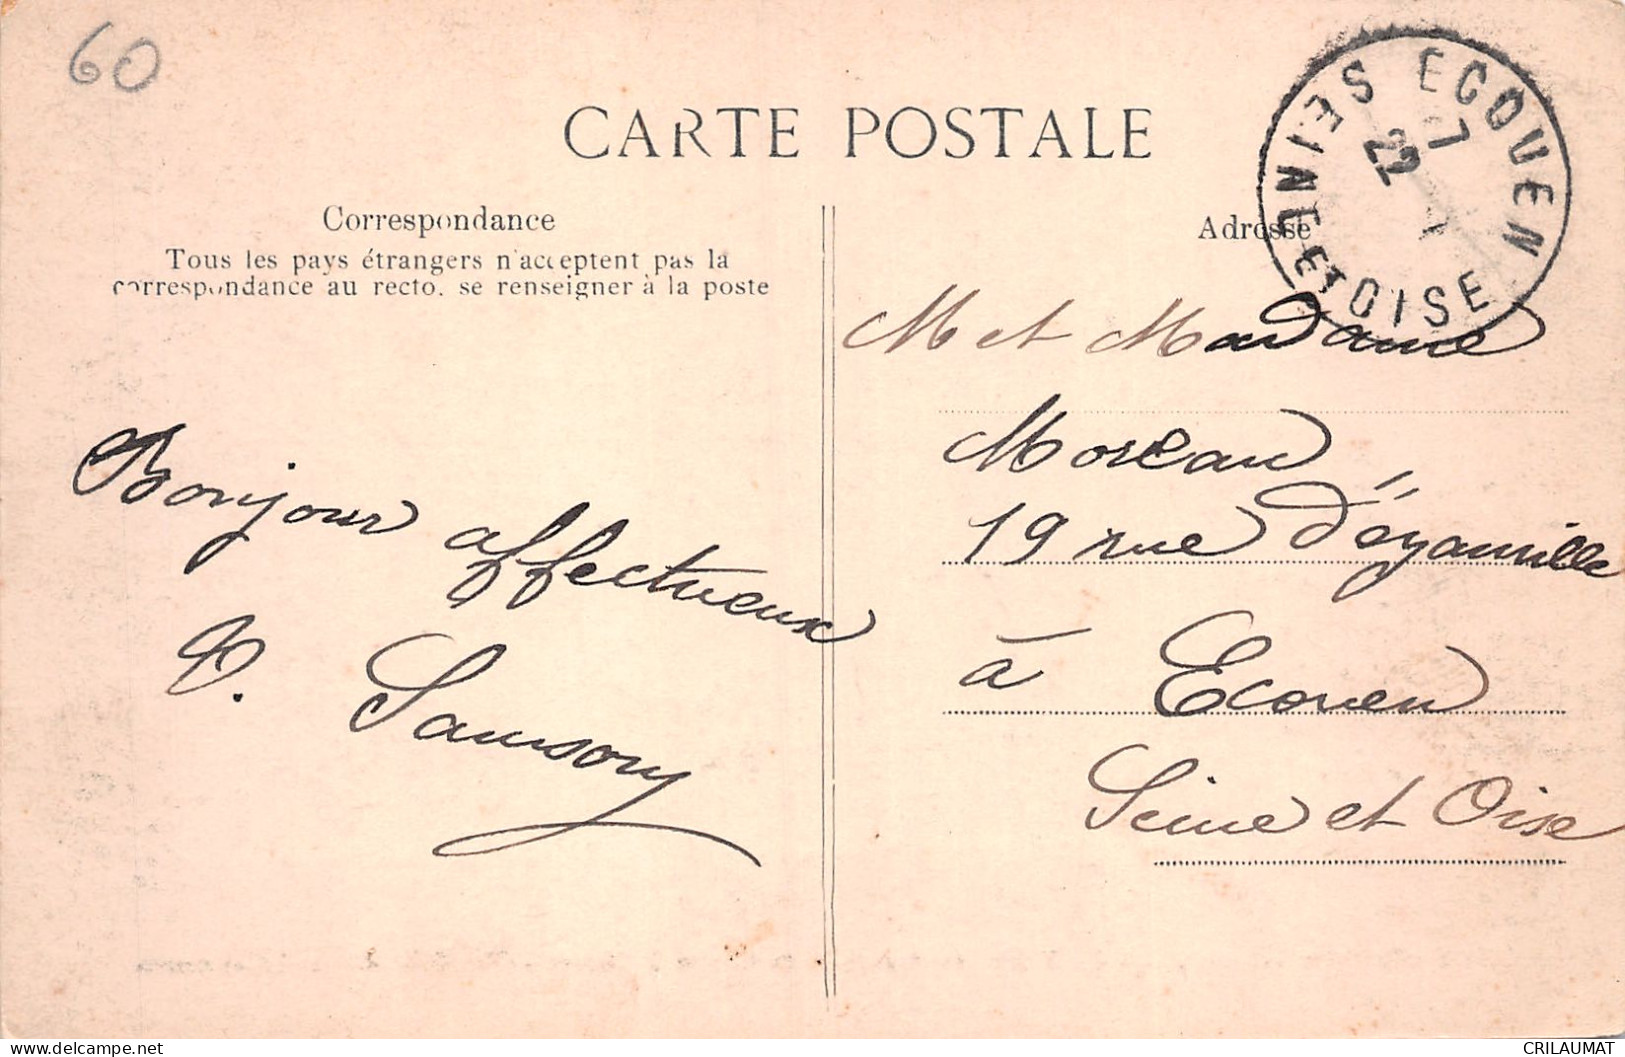 60
CARTE POSTALE
Correspondance
Tous les pays étrangers n'acceptent pas la
correspondance au recto, se renseigner à la poste
Bonjour affectueux
Samson
Adresse
ECOUEN
SEINE ET OISE
22
M et Madame
Moreau
19 rue d'ézanville
à Ecouen
Seine et Oise
CRILAUMAT